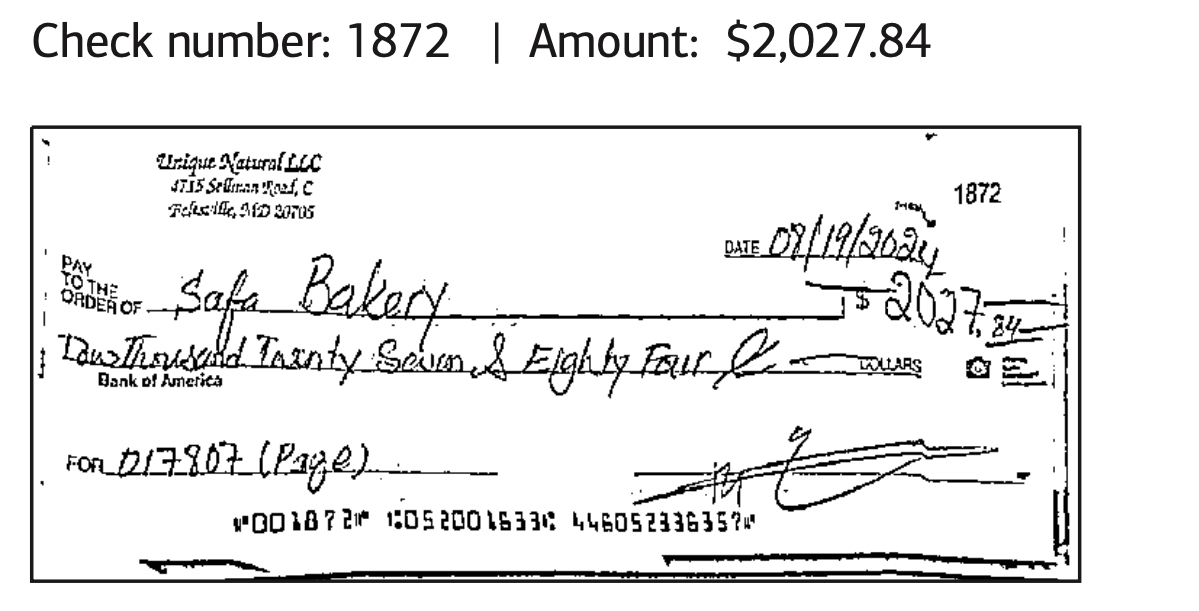 Check number: 1872 | Amount: $2,027.84
Unique Natural LLC
4715 Sellman Road, C
Beltsville, MD 20705
1872
DATE 08/19/2024
PAY TO THE ORDER OF Safa Bakery $ 2027.84
Thousand Twenty Seven & Eighty Four DOLLARS
Bank of America
FOR 017807 (Page)
⑈001872⑈ ⑆052001633⑆ 446052336357⑈